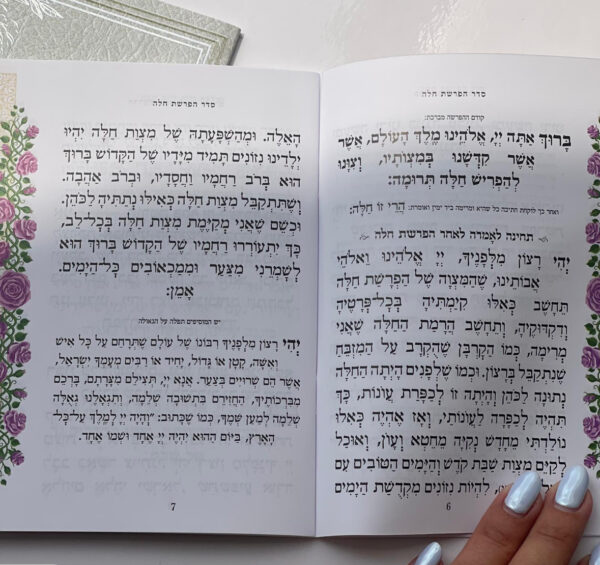 סדר הפרשת חלה
קודם ההפרשה מברכת:
בָּרוּךְ אַתָּה יְיָ, אֱלֹהֵינוּ מֶלֶךְ הָעוֹלָם, אֲשֶׁר
אֲשֶׁר קִדְּשָׁנוּ בְּמִצְוֹתָיו, וְצִוָּנוּ
לְהַפְרִישׁ חַלָּה תְּרוּמָה:
ואחר כך לוקחת חתיכה כל שהיא ומרימה ביד ימין ואומרת: הֲרֵי זוֹ חַלָּה:
תחינה לאמרה לאחר הפרשת חלה
יְהִי רָצוֹן מִלְּפָנֶיךָ, יְיָ אֱלֹהֵינוּ וֵאלֹהֵי
אֲבוֹתֵינוּ, שֶׁהַמִּצְוָה שֶׁל הַפְרָשַׁת חַלָּה
תֵּחָשֵׁב כְּאִלּוּ קִיַּמְתִּיהָ בְּכָל־פְּרָטֶיהָ
וְדִקְדּוּקֶיהָ, וְתֵחָשֵׁב הֲרָמַת הַחַלָּה שֶׁאֲנִי
מְרִימָה, כְּמוֹ הַקָּרְבָּן שֶׁהֻקְרַב עַל הַמִּזְבֵּחַ
שֶׁנִּתְקַבֵּל בְּרָצוֹן. וּכְמוֹ שֶׁלְּפָנִים הָיְתָה הַחַלָּה
נְתוּנָה לַכֹּהֵן וְהָיְתָה זוֹ לְכַפָּרַת עֲווֹנוֹת, כָּךְ
תִּהְיֶה לְכַפָּרָה לַעֲוֹנוֹתַי, וְאָז אֶהְיֶה כְּאִלּוּ
נוֹלַדְתִּי מֵחָדָשׁ נְקִיָּה מֵחֵטְא וְעָוֹן, וְאוּכַל
לְקַיֵּם מִצְוַת שַׁבַּת קֹדֶשׁ וְהַיָּמִים הַטּוֹבִים עִם
לִהְיוֹת נִזּוֹנִים מִקְּדֻשַּׁת הַיָּמִים
6
סדר הפרשת חלה
הָאֵלֶּה. וּמֵהַשְׁפָּעָתָהּ שֶׁל מִצְוַת חַלָּה יִהְיוּ
יְלָדֵינוּ נִזּוֹנִים תָּמִיד מִיָּדָיו שֶׁל הַקָּדוֹשׁ בָּרוּךְ
הוּא בְּרֹב רַחֲמָיו וַחֲסָדָיו, וּבְרֹב אַהֲבָה.
וְשֶׁתִּתְקַבֵּל מִצְוַת חַלָּה כְּאִילּוּ נְתַתִּיהָ לַכֹּהֵן.
וּכְשֵׁם שֶׁאֲנִי מְקַיֶּמֶת מִצְוַת חַלָּה בְּכָל־לֵב,
כָּךְ יִתְעוֹרְרוּ רַחֲמָיו שֶׁל הַקָּדוֹשׁ בָּרוּךְ הוּא
לְשָׁמְרֵנִי מִצַּעַר וּמִמַּכְאוֹבִים כָּל־הַיָּמִים.
אָמֵן:
יש המוסיפים תפלה על הגאולה
יְהִי רָצוֹן מִלְּפָנֶיךָ רִבּוֹנוֹ שֶׁל עוֹלָם שֶׁתְּרַחֵם עַל כָּל אִישׁ
וְאִשָּׁה, קָטָן אוֹ גָּדוֹל, יָחִיד אוֹ רַבִּים מֵעַמְּךָ יִשְׂרָאֵל,
אֲשֶׁר הֵם שְׁרוּיִים בְּצַעַר. אָנָּא יְיָ, תַּצִּילֵם מִצָּרָתָם, בָּרְכֵם
מִבִּרְכוֹתֶיךָ, הַחֲזִירֵם בִּתְשׁוּבָה שְׁלֵמָה, וְתִגְאָלֵנוּ גְּאֻלָּה
שְׁלֵמָה לְמַעַן שִׁמְךָ, כְּמוֹ שֶׁכָּתוּב: "וְהָיָה יְיָ לְמֶלֶךְ עַל־כָּל־
הָאָרֶץ, בַּיּוֹם הַהוּא יִהְיֶה יְיָ אֶחָד וּשְׁמוֹ אֶחָד.
7